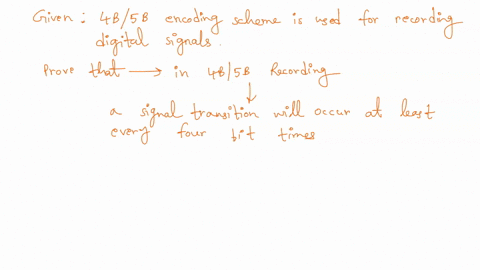 Given: 4B/5B encoding scheme is used for recording
digital signals.
Prove that → in 4B/5B Recording
↓
a signal transition will occur at least
every four bit times